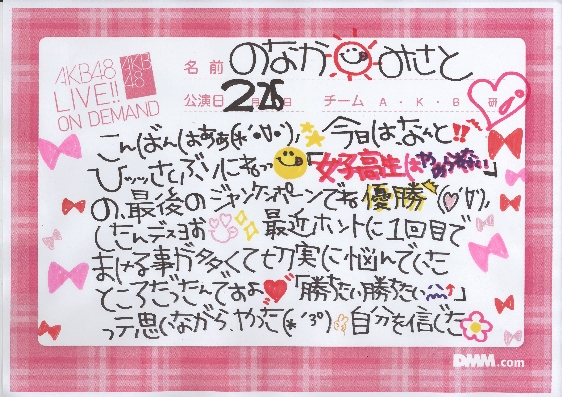 AKB48
LIVE!!
ON DEMAND
AKB
48
名前 のなか みさと
公演日 2月25日 チーム A・K・B・研
こんばんはぁぁ(*'0'), 今日は、なんと!!
ひッッさしぶりにねっ「女子高生はやめられない」
の、最後のジャンケンポーンでね優勝(♡∀),
したんデスよお 最近ホントに1回目で
まける事が多くて切実に悩んでいた
ところだったんですよぉ「勝ちたい勝ちたい」
って思いながら、やった(*'3°) 自分を信じた
DMM.com